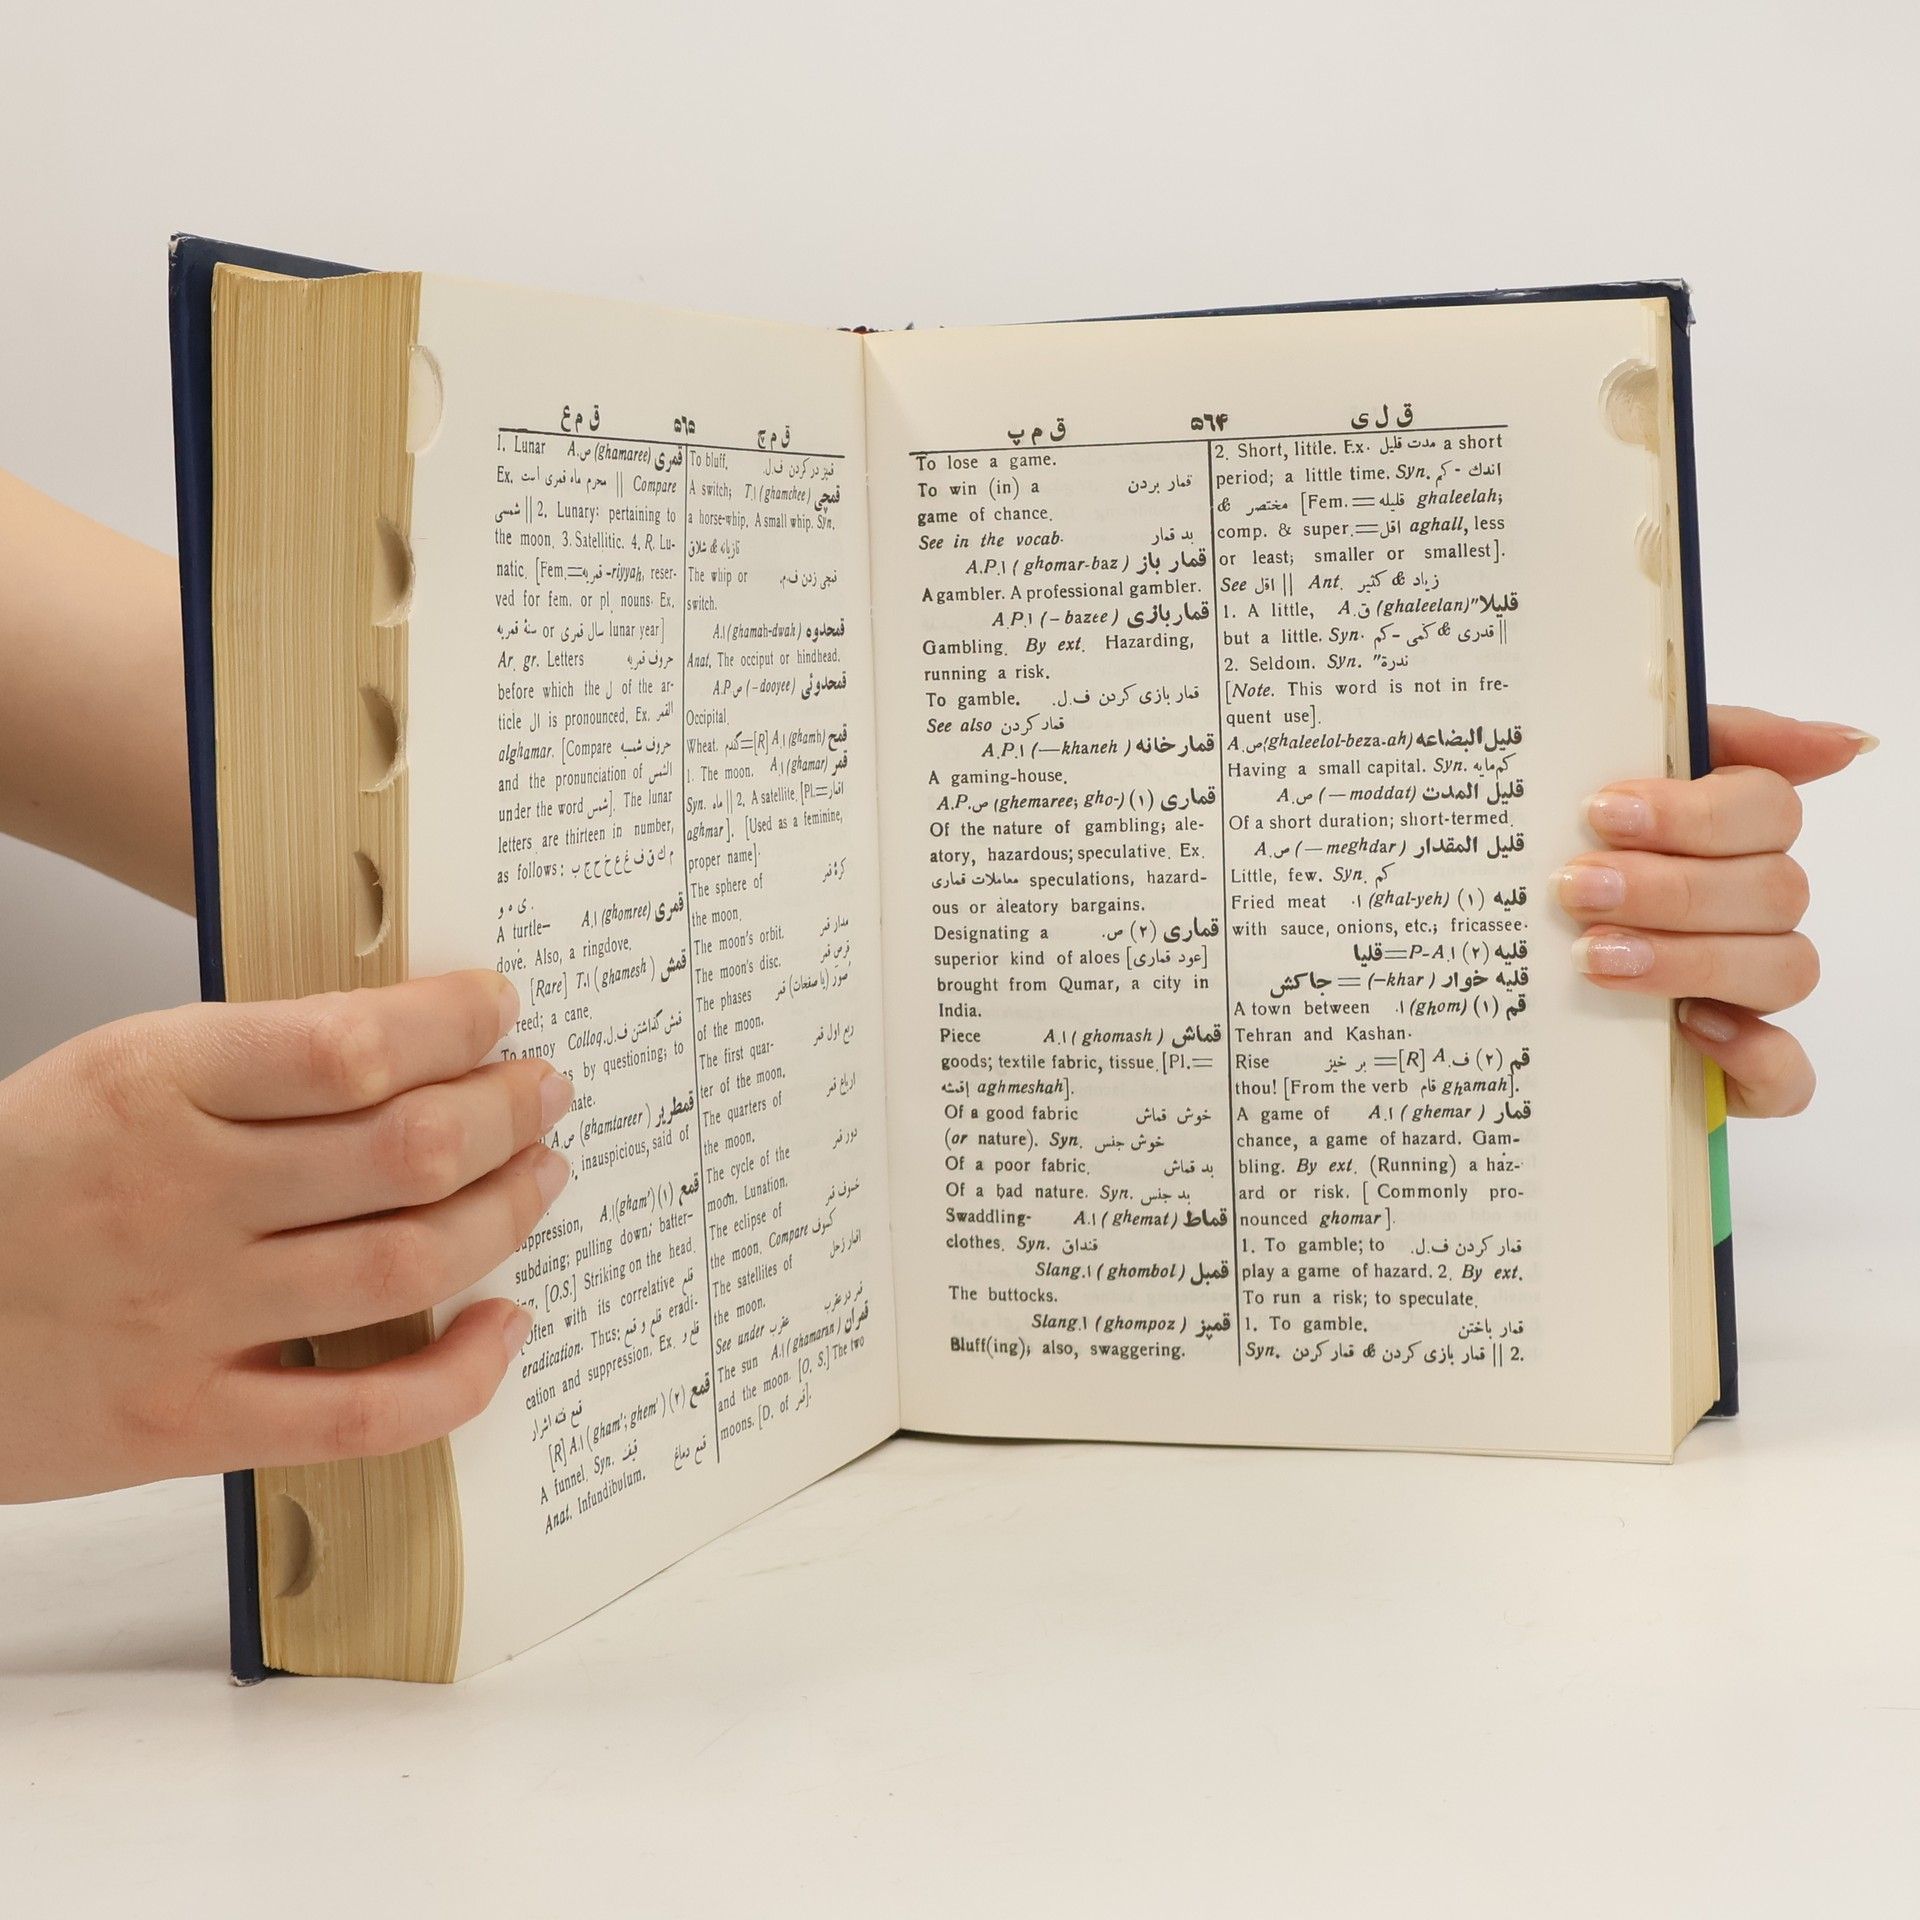 ق ل ی ۵۶۴ ق م پ
2. Short, little. Ex. مدت قلیل a short
period; a little time. Syn. اندك - کم
& مختصر [Fem.=قلیله ghaleelah;
comp. & super.=اقل aghall, less
or least; smaller or smallest].
See اقل || Ant. زیاد & کثیر
1. A little, A.ق (ghaleelan) قلیلا"
but a little. Syn. قدری & کمی - کم ||
2. Seldom. Syn. ندرة"
[Note. This word is not in fre-
quent use].
A.ص (ghaleelol-beza-ah) قلیل البضاعه
Having a small capital. Syn. کم مایه
A.ص (—moddat) قلیل المدت
Of a short duration; short-termed.
A.ص (—meghdar) قلیل المقدار
Little, few. Syn. کم
Fried meat ا. (ghal-yeh) (۱) قلیه
with sauce, onions, etc.; fricassee.
P-A.ا (۲) قلیه=قلیا
قلیه خوار (-khar) = جاکش
A town between ا. (ghom) (۱) قم
Tehran and Kashan.
Rise بر خیز =[R] A.ف (۲) قم
thou! [From the verb قام ghamah].
A game of A.ا (ghemar) قمار
chance, a game of hazard. Gam-
bling. By ext. (Running) a haz-
ard or risk. [Commonly pro-
nounced ghomar].
1. To gamble; to قمار کردن ف.ل.
play a game of hazard. 2. By ext.
To run a risk; to speculate.
1. To gamble. قمار باختن
Syn. قمار بازی کردن & قمار کردن || 2.
To lose a game.
To win (in) a قمار بردن
game of chance.
See in the vocab. بد قمار
A.P.ا (ghomar-baz) قمار باز
A gambler. A professional gambler.
A.P.ا (-bazee) قمار بازی
Gambling. By ext. Hazarding,
running a risk.
To gamble. قمار بازی کردن ف.ل.
See also قمار کردن
A.P.ا (—khaneh) قمار خانه
A gaming-house.
A.P.ص (ghemaree; gho-) (۱) قماری
Of the nature of gambling; ale-
atory, hazardous; speculative. Ex.
معاملات قماری speculations, hazard-
ous or aleatory bargains.
Designating a ص. (۲) قماری
superior kind of aloes [عود قماری]
brought from Qumar, a city in
India.
Piece A.ا (ghomash) قماش
goods; textile fabric, tissue. [Pl.=
اقمشه aghmeshah].
Of a good fabric خوش قماش
(or nature). Syn. خوش جنس
Of a poor fabric. بد قماش
Of a bad nature. Syn. بد جنس
Swaddling- A.ا (ghemat) قماط
clothes. Syn. قنداق
Slang.ا (ghombol) قمبل
The buttocks.
Slang.ا (ghompoz) قمپز
Bluff(ing); also, swaggering.
ق م چ ۵۶۵ ق م ع
To bluff. قمپز در کردن ف.ل.
A switch; T.ا (ghamchee) قمچی
a horse-whip. A small whip. Syn.
تازیانه & شلاق
The whip or قمچی زدن ف.م.
switch.
A.ا (ghamah-dwah) قمحدوه
Anat. The occiput or hindhead.
A.P ص (-dooyee) قمحدوئی
Occipital.
Wheat. گندم=[R] A.ا (ghamh) قمح
1. The moon. A.ا (ghamar) قمر
Syn. ماه || 2. A satellite. [Pl.=اقمار
aghmar]. [Used as a feminine,
proper name].
The sphere of کرهٔ قمر
the moon.
The moon's orbit. مدار قمر
The moon's disc. قرص قمر
The phases صور (یا صفحات) قمر
of the moon.
The first quar- ربع اول قمر
ter of the moon.
The quarters of ارباع قمر
the moon.
The cycle of the دور قمر
moon. Lunation.
The eclipse of خسوف قمر
the moon. Compare کسوف
The satellites of اقمار زحل
the moon.
See under عقرب قمر در عقرب
The sun A.ا (ghamaran) قمران
and the moon. [O. S.] The two
moons. [D. of قمر].
1. Lunar A.ص (ghamaree) قمری
Ex. محرم ماه قمری است || Compare
شمسی || 2. Lunary: pertaining to
the moon. 3. Satellitic. 4. R. Lu-
natic. [Fem.=قمریه -riyyah, reser-
ved for fem. or pl. nouns. Ex.
سنهٔ قمریه or سال قمری lunar year]
Ar. gr. Letters حروف قمریه
before which the ل of the ar-
ticle ال is pronounced. Ex. القمر
alghamar. [Compare حروف شمسیه
and the pronunciation of الشمس
under the word شمس]. The lunar
letters are thirteen in number,
as follows: ب ج ح خ ع غ ف ق ك م
و ه ی.
A turtle- A.ا (ghomree) قمری
dove. Also, a ringdove.
[Rare] T.ا (ghamesh) قمش
reed; a cane.
To annoy Colloq. قمش گذاشتن ف.ل.
by questioning; to
A.ص (ghamtareer) قمطریر
inauspicious, said of
suppression, A.ا (gham') (۱) قمع
subduing; pulling down; batter-
ing. [O.S.] Striking on the head.
[Often with its correlative قلع
Thus: قلع و قمع eradi-
eradication.
cation and suppression. Ex. قلع و
قمع فتنه اشرار
[R] A.ا (gham'; ghem') (۲) قمع
A funnel. Syn. قیف
Anat. Infundibulum. قمع دماغ